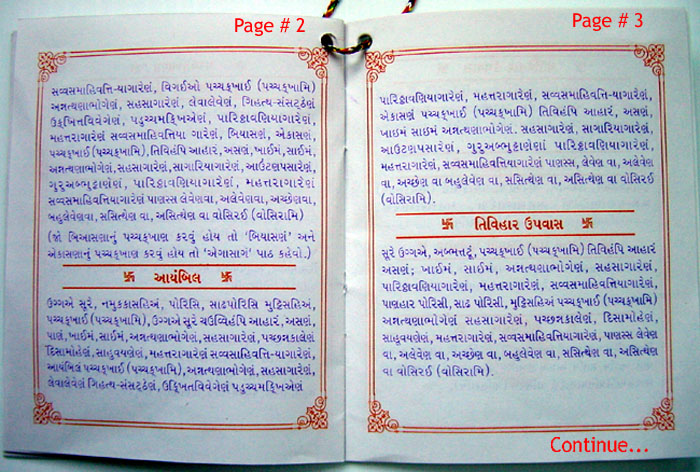 Page # 2
સવ્વસમાહિવત્તિ-યાગારેણં, વિગઈઓ પચ્ચક્ખાઈ (પચ્ચક્ખામિ)
અન્નત્થણાભોગેણં, સહસાગારેણં, લેવાલેવેણં, ગિહત્થ-સંસટ્ઠેણં
ઉક્ખિત્તવિવેગેણં, પડુચ્ચમક્ખિએણં, પારિટ્ઠાવણિયાગારેણં,
મહત્તરાગારેણં સવ્વસમાહિવત્તિયા ગારેણં, બિયાસણં, એકાસણં,
પચ્ચક્ખાઈ (પચ્ચક્ખામિ), તિવિહંપિ આહારં, અસણં, ખાઈમં, સાઈમં,
અન્નત્થણાભોગેણં, સહસાગારેણં, સાગારિયાગારેણં, આઉંટણપસારેણં,
ગુરુઅબ્ભુટ્ઠાણેણં, પારિટ્ઠાવણિયાગારેણં, મહત્તરાગારેણં
સવ્વસમાહિવત્તિયાગારેણં પાણસ્સ લેવેણવા, અલેવેણવા, અચ્છેણવા,
બહુલેવેણવા, સસિત્થેણ વા, અસિત્થેણ વા વોસિરઈ (વોસિરામિ)
(જો બિઆસણાનું પચ્ચક્ખાણ કરવું હોય તો ‘બિયાસણં’ અને
એકાસણાનું પચ્ચક્ખાણ કરવું હોય તો ‘એગાસણં’ પાઠ કહેવો.)
આયંબિલ
ઉગ્ગએ સૂરે, નમુક્કારસહિઅં, પોરિસિં, સાઢપોરિસિં મુટ્ઠિસહિઅં,
પચ્ચક્ખાઈ (પચ્ચક્ખામિ), ઉગ્ગએ સૂરે ચઉવ્વિહંપિ આહારં, અસણં,
પાણં, ખાઈમં, સાઈમં, અન્નત્થણાભોગેણં, સહસાગારેણં, પચ્છન્નકાલેણં
દિસામોહેણં, સાહુવયણેણં, મહત્તરાગારેણં સવ્વસમાહિવત્તિ-યાગારેણં,
આયંબિલં પચ્ચક્ખાઈ (પચ્ચક્ખામિ), અન્નત્થણાભોગેણં, સહસાગારેણં,
લેવાલેવેણં ગિહત્થ-સંસટ્ઠેણં, ઉક્ખિત્તવિવેગેણં પડુચ્ચમક્ખિએણં
Page # 3
પારિટ્ઠાવણિયાગારેણં, મહત્તરાગારેણં, સવ્વસમાહિવત્તિ-યાગારેણં,
એકાસણં પચ્ચક્ખાઈ (પચ્ચક્ખામિ) તિવિહંપિ આહારં, અસણં,
ખાઇમં સાઇમં અન્નત્થણાભોગેણં, સહસાગારેણં, સાગારિયાગારેણં,
આઉંટણપસારેણં, ગુરુઅબ્ભુટ્ઠાણેણં પારિટ્ઠાવણિયાગારેણં,
મહત્તરાગારેણં, સવ્વસમાહિવત્તિયાગારેણં પાણસ્સ, લેવેણ વા, અલેવેણ
વા, અચ્છેણ વા બહુલેવેણ વા, સસિત્થેણ વા, અસિત્થેણ વા વોસિરઈ
(વોસિરામિ).
તિવિહાર ઉપવાસ
સૂરે ઉગ્ગએ, અબ્ભત્તટ્ઠં, પચ્ચક્ખાઈ (પચ્ચક્ખામિ) તિવિહંપિ આહારં
અસણં; ખાઈમં, સાઈમં, અન્નત્થણાભોગેણં, સહસાગારેણં,
પારિટ્ઠાવણિયાગારેણં, મહત્તરાગારેણં, સવ્વસમાહિવત્તિયાગારેણં
પાણહાર પોરિસીં, સાઢ પોરિસીં, મુટ્ઠિસહિઅં પચ્ચક્ખાઈ (પચ્ચક્ખામિ)
અન્નત્થણાભોગેણં સહસાગારેણં, પચ્છન્નકાલેણં, દિસામોહેણં,
સાહુવયણેણં, મહત્તરાગારેણં, સવ્વસમાહિવત્તિયાગારેણં, પાણસ્સ લેવેણ
વા, અલેવેણ વા, અચ્છેણ વા, બહુલેવેણ વા, સસિત્થેણ વા, અસિત્થેણ
વા વોસિરઈ (વોસિરામિ).
Continue...